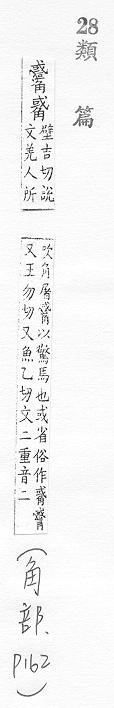 28
類篇
壁吉切說
文羌人所
吹角屠以驚馬也或省俗作
又王勿切又魚乙切文二重音二
(角部、P162)